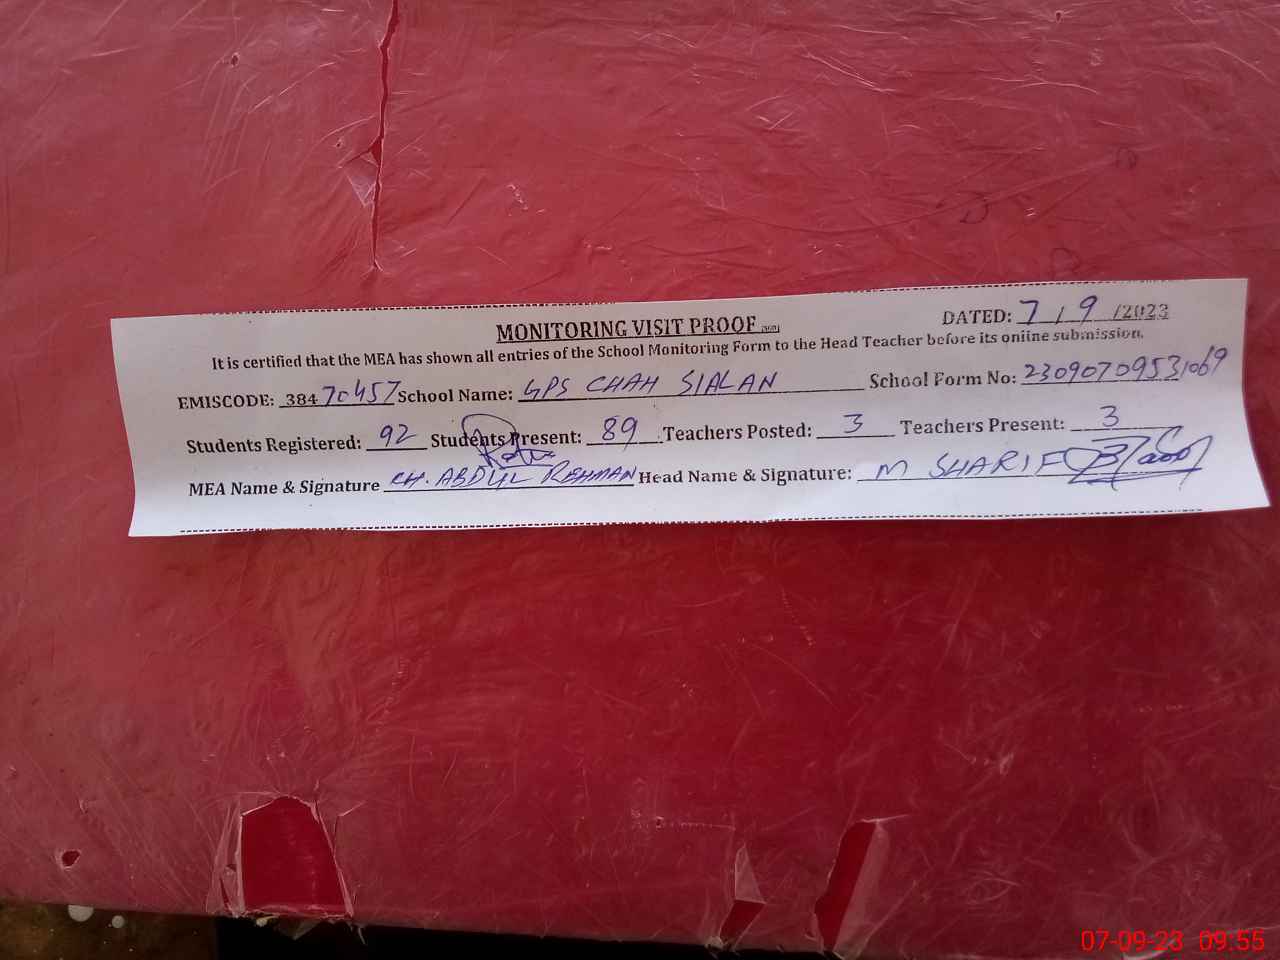 MONITORING VISIT PROOF
DATED: 7 / 9 /2023
It is certified that the MEA has shown all entries of the School Monitoring Form to the Head Teacher before its online submission.
EMISCODE: 38470457 School Name: GPS CHAH SIALAN School Form No: 23090709531069
Students Registered: 92 Students Present: 89 Teachers Posted: 3 Teachers Present: 3
MEA Name & Signature CH. ABDUL REHMAN Head Name & Signature: M SHARIF
07-09-23 09:55